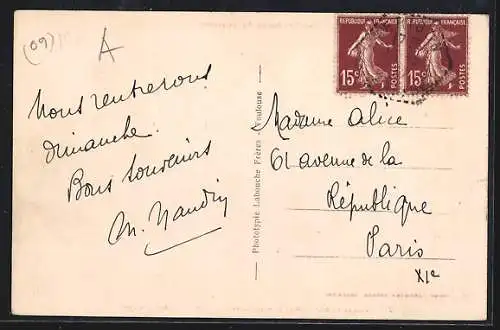 (09)
A
Nous rentrerons
dimanche.
Bons souvenirs
M. Naudin
Phototypie Labouche Frères - Toulouse
RÉPUBLIQUE FRANÇAISE
15c
POSTES
R.PUBLIQUE FRANÇAISE
15c
POSTES
Madame Alice
61 avenue de la
République
Paris
XIe